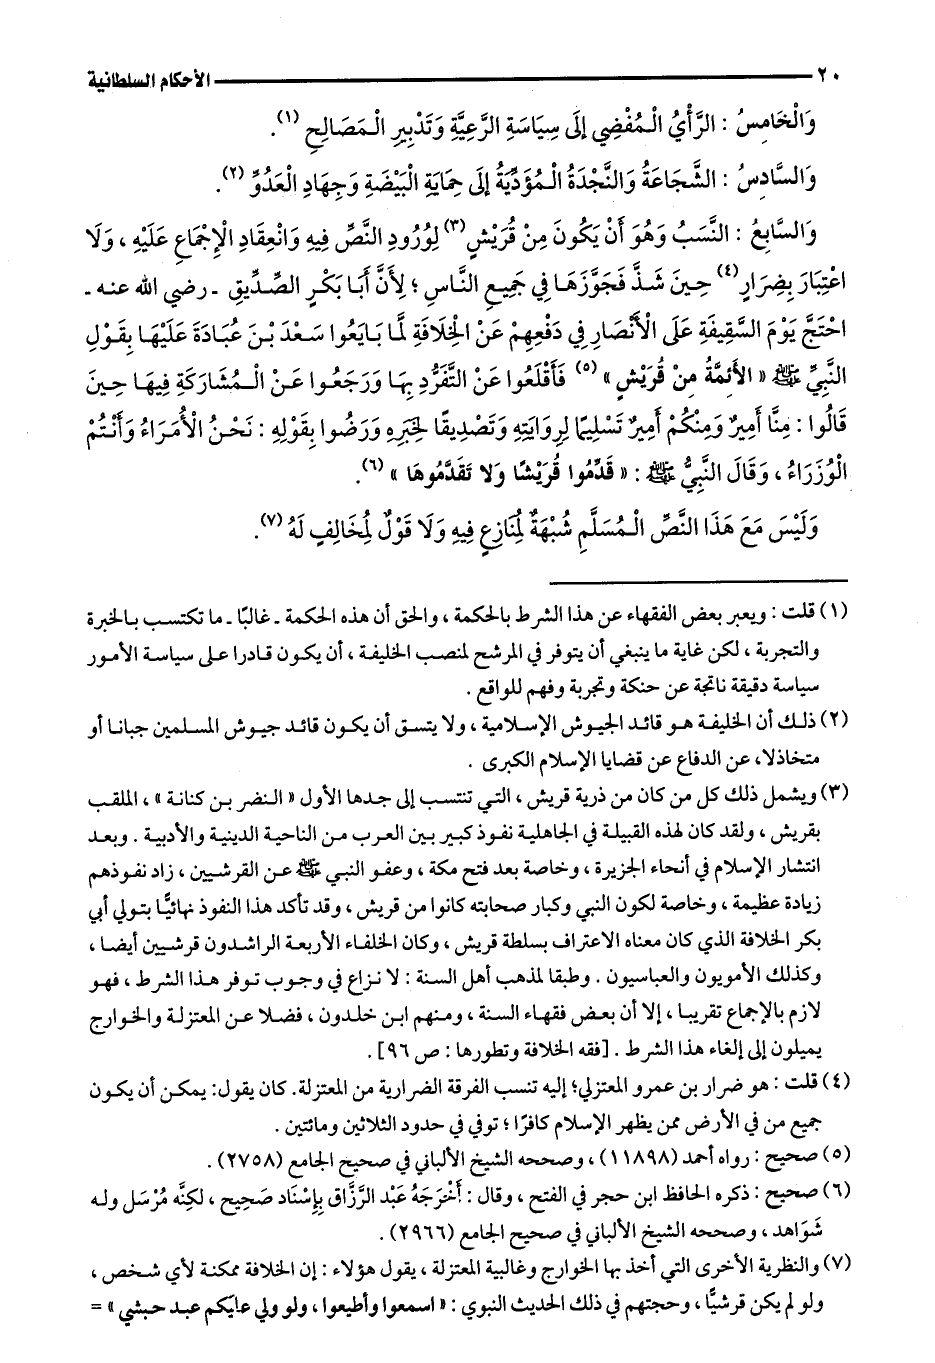 ٢٠ الأحكام السلطانية
وَالْخَامِسُ : الرَّأْيُ الْمُفْضِي إِلَى سِيَاسَةِ الرَّعِيَّةِ وَتَدْبِيرِ الْمَصَالِحِ (١).
وَالسَّادِسُ : الشَّجَاعَةُ وَالنَّجْدَةُ الْمُؤَدِّيَةُ إِلَى حِمَايَةِ الْبَيْضَةِ وَجِهَادِ الْعَدُوِّ (٢).
وَالسَّابِعُ : النَّسَبُ وَهُوَ أَنْ يَكُونَ مِنْ قُرَيْشٍ (٣) لِوُرُودِ النَّصِّ فِيهِ وَانْعِقَادِ الْإِجْمَاعِ عَلَيْهِ ، وَلَا
اعْتِبَارَ بِضِرَارٍ (٤) حِينَ شَذَّ فَجَوَّزَهَا فِي جَمِيعِ النَّاسِ ؛ لِأَنَّ أَبَا بَكْرٍ الصِّدِّيقِ ـ رضي الله عنه ـ
احْتَجَّ يَوْمَ السَّقِيفَةِ عَلَى الْأَنْصَارِ فِي دَفْعِهِمْ عَنْ الْخِلَافَةِ لَمَّا بَايَعُوا سَعْدَ بْنَ عُبَادَةَ عَلَيْهَا بِقَوْلِ
النَّبِيِّ ﷺ « الأَئِمَّةُ مِنْ قُرَيْشٍ » (٥) فَأَقْلَعُوا عَنْ التَّفَرُّدِ بِهَا وَرَجَعُوا عَنْ الْمُشَارَكَةِ فِيهَا حِينَ
قَالُوا : مِنَّا أَمِيرٌ وَمِنْكُمْ أَمِيرٌ تَسْلِيمًا لِرِوَايَتِهِ وَتَصْدِيقًا لِخَبَرِهِ وَرَضُوا بِقَوْلِهِ : نَحْنُ الْأُمَرَاءُ وَأَنْتُمْ
الْوُزَرَاءُ ، وَقَالَ النَّبِيُّ ﷺ : « قَدِّمُوا قُرَيْشًا وَلا تَقَدَّمُوهَا » (٦).
وَلَيْسَ مَعَ هَذَا النَّصِّ الْمُسَلَّمِ شُبْهَةٌ لِمُنَازِعٍ فِيهِ وَلَا قَوْلٌ لِمُخَالِفٍ لَهُ (٧).
(١) قلت : ويعبر بعض الفقهاء عن هذا الشرط بالحكمة ، والحق أن هذه الحكمة ـ غالبًا ـ ما تكتسب بالخبرة
والتجربة ، لكن غاية ما ينبغي أن يتوفر في المرشح لمنصب الخليفة ، أن يكون قادرا على سياسة الأمور
سياسة دقيقة ناتجة عن حنكة وتجربة وفهم للواقع .
(٢) ذلك أن الخليفة هو قائد الجيوش الإسلامية ، ولا يتسق أن يكون قائد جيوش المسلمين جبانا أو
متخاذلا، عن الدفاع عن قضايا الإسلام الكبرى .
(٣) ويشمل ذلك كل من كان من ذرية قريش ، التي تنتسب إلى جدها الأول « النضر بن كنانة » ، الملقب
بقريش ، ولقد كان لهذه القبيلة في الجاهلية نفوذ كبير بين العرب من الناحية الدينية والأدبية . وبعد
انتشار الإسلام في أنحاء الجزيرة ، وخاصة بعد فتح مكة ، وعفو النبي ﷺ عن القرشيين ، زاد نفوذهم
زيادة عظيمة ، وخاصة لكون النبي وكبار صحابته كانوا من قريش ، وقد تأكد هذا النفوذ نهائيًّا بتولي أبي
بكر الخلافة الذي كان معناه الاعتراف بسلطة قريش ، وكان الخلفاء الأربعة الراشدون قرشيين أيضا ،
وكذلك الأمويون والعباسيون . وطبقا لمذهب أهل السنة : لا نزاع في وجوب توفر هذا الشرط ، فهو
لازم بالإجماع تقريبا ، إلا أن بعض فقهاء السنة ، ومنهم ابن خلدون ، فضلا عن المعتزلة والخوارج
يميلون إلى إلغاء هذا الشرط . [فقه الخلافة وتطورها : ص ٩٦] .
(٤) قلت : هو ضرار بن عمرو المعتزلي؛ إليه تنسب الفرقة الضرارية من المعتزلة. كان يقول: يمكن أن يكون
جميع من في الأرض ممن يظهر الإسلام كافرًا ؛ توفي في حدود الثلاثين ومائتين .
(٥) صحيح : رواه أحمد (١١٨٩٨) ، وصححه الشيخ الألباني في صحيح الجامع (٢٧٥٨) .
(٦) صحيح : ذكره الحافظ ابن حجر في الفتح ، وقال : أَخْرَجَهُ عَبْد الرَّزَّاق بِإِسْنَاد صَحِيح ، لَكِنَّه مُرْسَل وله
شَوَاهد ، وصححه الشيخ الألباني في صحيح الجامع (٢٩٦٦) .
(٧) والنظرية الأخرى التي أخذ بها الخوارج وغالبية المعتزلة ، يقول هؤلاء : إن الخلافة ممكنة لأي شخص ،
ولو لم يكن قرشيًّا ، وحجتهم في ذلك الحديث النبوي : « اسمعوا وأطيعوا ، ولو ولي عليكم عبد حبشي » =